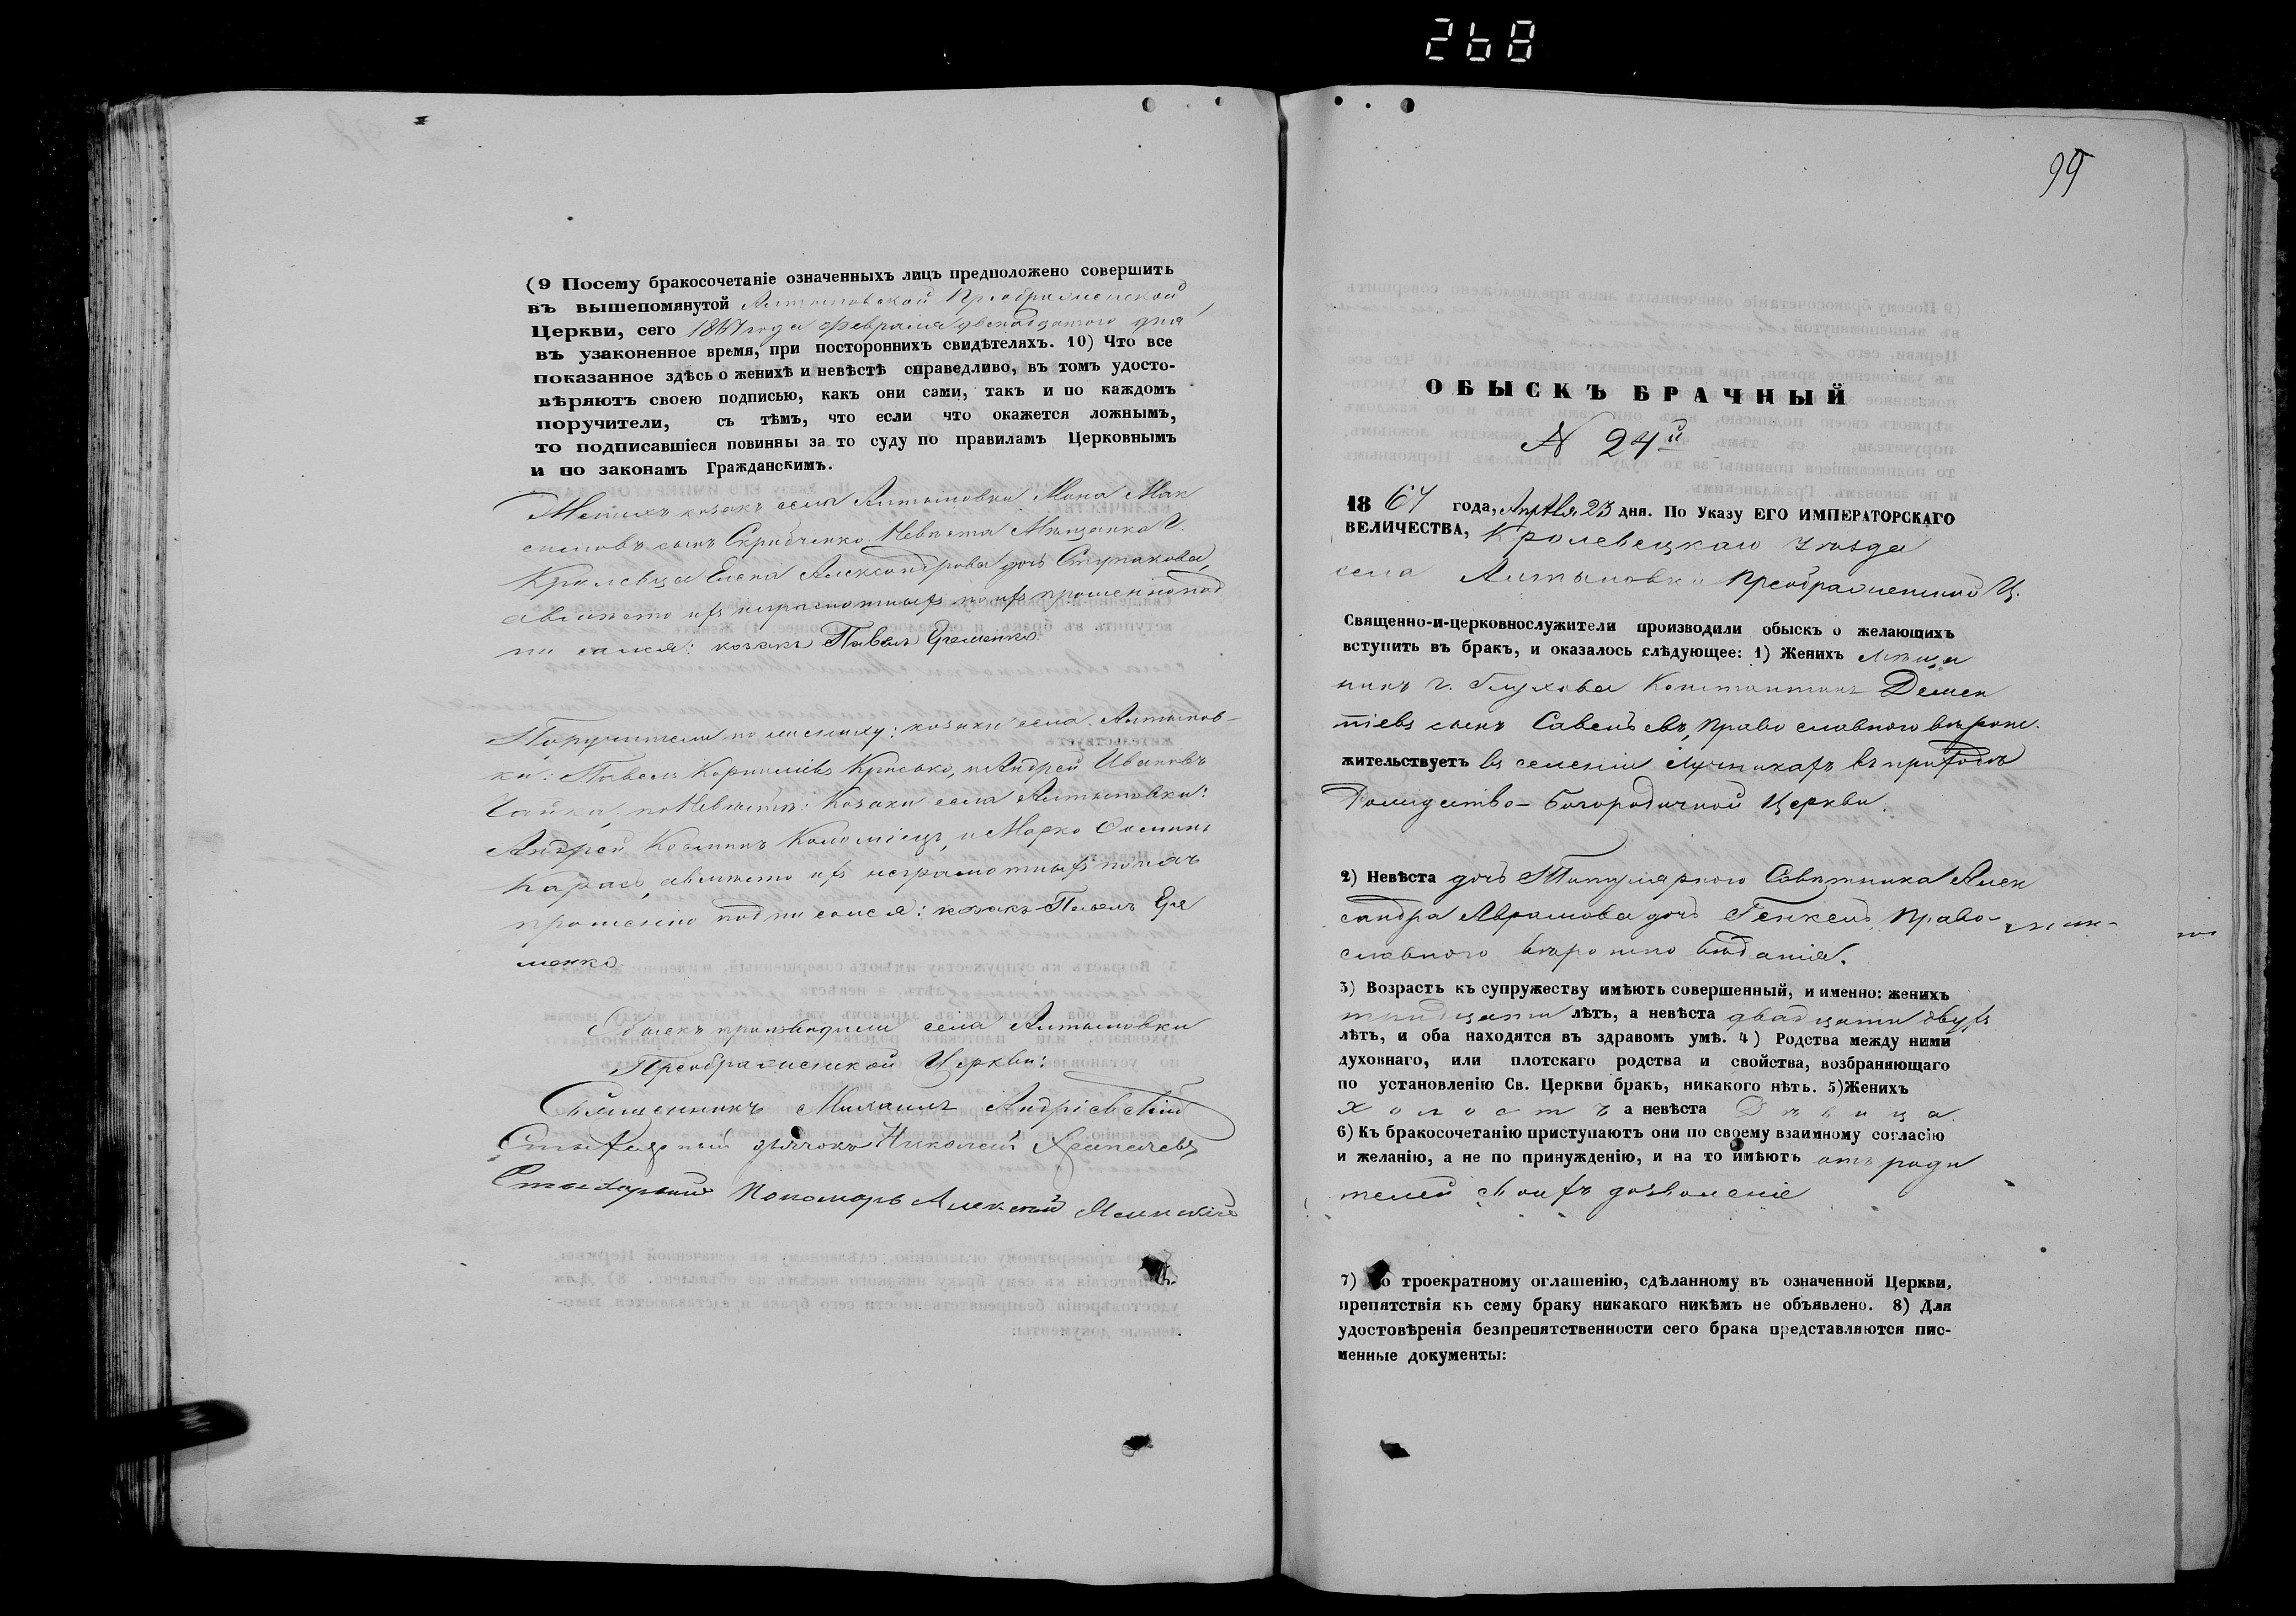 268
(9 Посему бракосочетаніе означенныхъ лицъ предположено совершить
въ вышепомянутой Алтыновской Преображенской
Церкви, сего 1864 года февраля двенадцатого дня
въ узаконенное время, при постороннихъ свидѣтеляхъ. 10) Что все
показанное здѣсь о женихѣ и невѣстѣ справедливо, въ томъ удосто-
вѣряютъ своею подписью, какъ они сами, такъ и по каждомъ
поручители, съ тѣмъ, что если что окажется ложнымъ,
то подписавшіеся повинны за то суду по правиламъ Церковнымъ
и по законамъ Гражданскимъ.
Женихъ козакъ села Алтыновки Мак
симовъ сынъ Скрибченко Невѣста Мѣщанка г.
Кролевца Елена Александрова дочь Ступакова,
а вмѣсто ихъ неграмотныхъ по ихъ прошенію под
писался: козакъ Павелъ Еременко.
Поручители по жениху: козаки села Алтынов-
ки: Павелъ Корниліевъ Крисько, и Андрей Ивановъ
Чайка, по Невѣстѣ: Козаки села Алтыновки:
Андрей Косминъ Коломіецъ, и Марко
Карась, а вмѣсто ихъ неграмотныхъ по ихъ
прошенію подписался: козакъ Павелъ Ере
менко
Обыскъ производили села Алтыновки
Преображенской Церкви:
Священникъ Михаилъ Андріевскій
дьячокъ Николай
Пономарь Алексѣй
99
ОБЫСКЪ БРАЧНЫЙ
N 24й
1864 года, Апрѣля 23 дня. По Указу ЕГО ИМПЕРАТОРСКАГО
ВЕЛИЧЕСТВА, Кролевецкаго уѣзда
села Алтыновки Преображенской Ц.
Священно-и-церковнослужители производили обыскъ о желающихъ
вступить въ бракъ, и оказалось слѣдующее: 1) Женихъ мѣща
нинъ г. Глухова Константинъ Демен
тіевъ сынъ Савельевъ, православного вѣроис.
жительствуетъ въ селеніи Лучникахъ въ приходѣ
Рождество-Богородичной Церкви.
2) Невѣста дочь Титулярного Совѣтника Алек
сандра Аврамова дочь Генкель, право-
славного вѣроисповѣданія.
3) Возрастъ къ супружеству имѣютъ совершенный, и именно: женихъ
тридцати лѣтъ, а невѣста двадцати двухъ
лѣтъ, и оба находятся въ здравомъ умѣ. 4) Родства между ними
духовнаго, или плотскаго родства и свойства, возбраняющаго
по установленію Св. Церкви бракъ, никакого нѣтъ. 5) Женихъ
холостъ а невѣста Дѣвица
6) Къ бракосочетанію приступаютъ они по своему взаимному согласію
и желанію, а не по принужденію, и на то имѣютъ отъ роди
телей своихъ дозволеніе
7) По троекратному оглашенію, сдѣланному въ означенной Церкви,
препятствія къ сему браку никакого никѣмъ не объявлено. 8) Для
удостовѣренія безпрепятственности сего брака представляются пис-
менные документы: